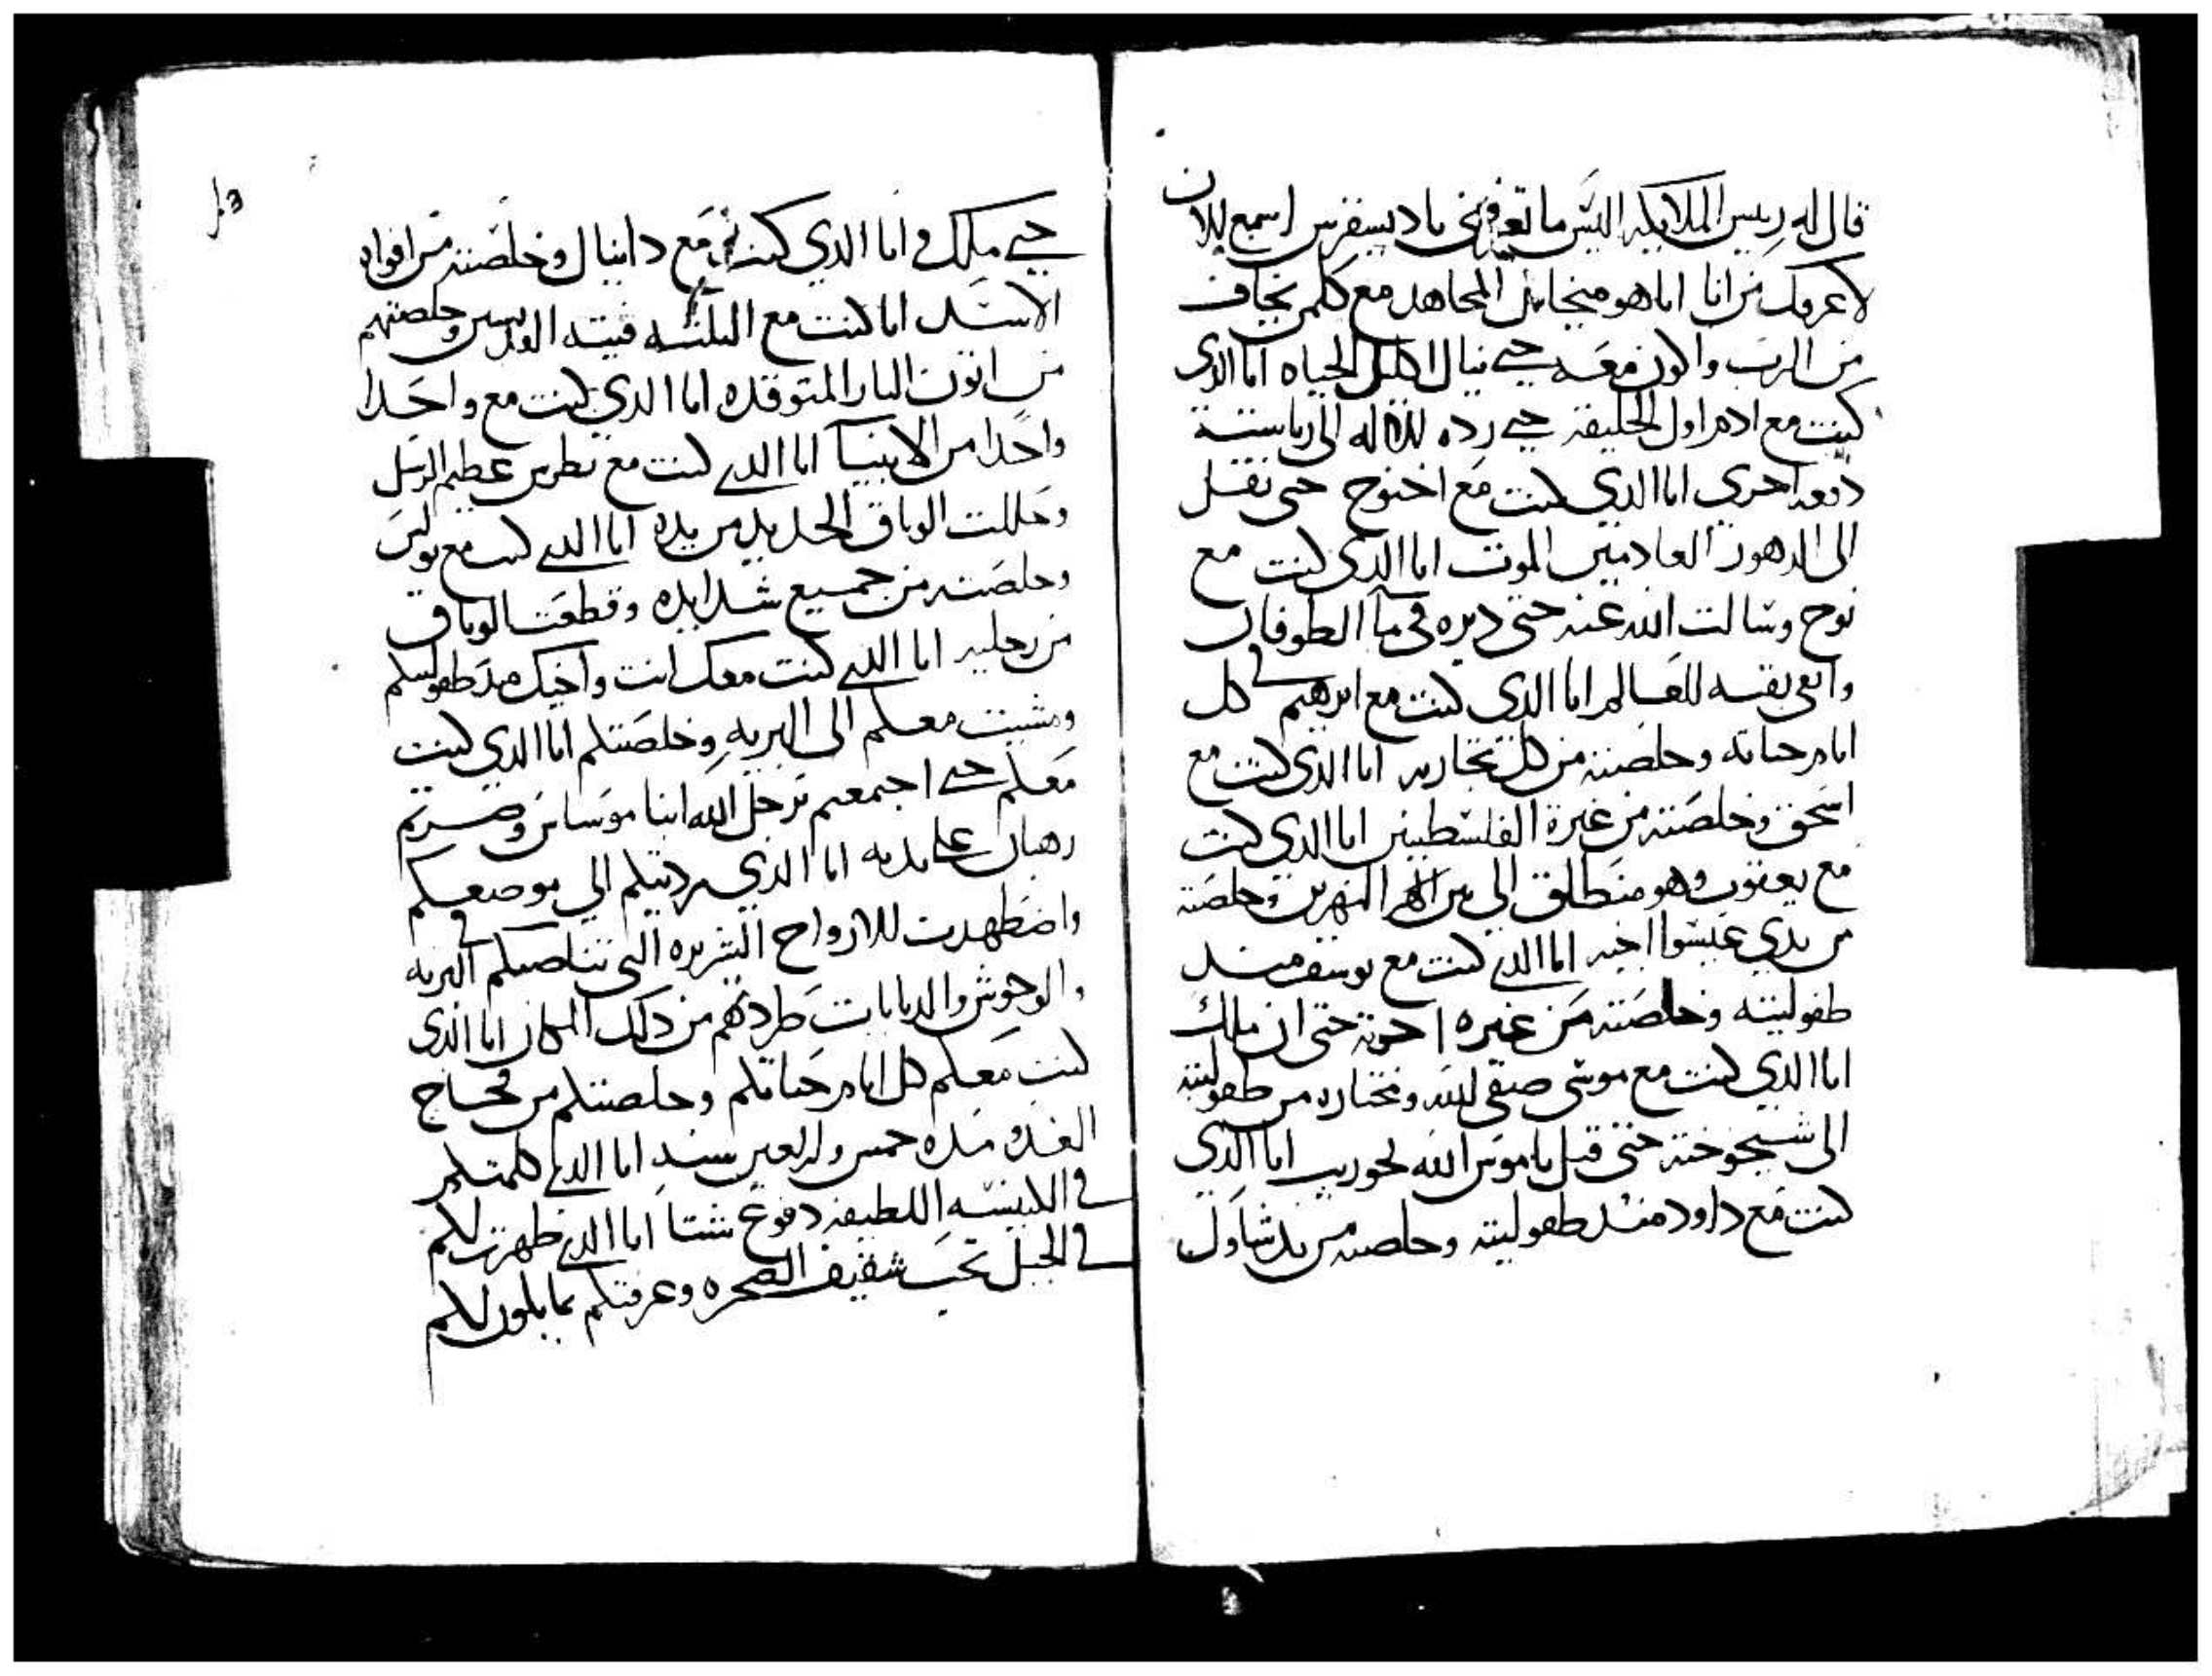 قال له رييس الملايكه اليس ما تعرفني يا ديسقرس اسمع للان
لاعرفك من انا انا هو ميخاييل المجاهد مع كلمن يخاف
من الرب واكون معه حتي ينال اكليل الحياه انا الذي
كنت مع ادم اول الخليقه حتي رده الاله الي رياسته
دفعه اخري انا الذي كنت مع اخنوخ حتي نقل
الي الدهور العادمين الموت انا الذي كنت مع
نوح وسالت الله عنه حتي دبره في ما الطوفان
وابقي بقيه للعالم انا الذي كنت مع ابرهيم في كل
ايام حياته وخلصته من كل تجاربه انا الذي كنت مع
اسحق وخلصته من غيرة الفلسطينين انا الذي كنت
مع يعقوب وهو منطلق الي بين النهرين وخلصته
من يدي عيسوا اخيه انا الذي كنت مع يوسف منذ
طفوليته وخلصته من غيره اخوته حتي ان ملك
انا الذي كنت مع موسي صفي الله ومختاره من طفوليته
الي شيخوخته حتي قبل ناموس الله بحوريب انا الذي
كنت مع داود منذ طفوليته وخلصته من يد شاول
حتي ملك وانا الذي كنت مع دانيال وخلصته من افواه
الاسد انا كنت مع الثلثه فتيه القديسين وخلصتهم
من اتون النار المتوقده انا الذي كنت مع واحدا
واحدا من الانبيا انا الذي كنت مع بطرس عظيم الرسل
وحللت الوثاق الحديد من يده انا الذي كنت مع بولس
وخلصته من جميع شدايده وقطعت الوثاق
من رجليه انا الذي كنت معك انت واخيك منذ طفوليتكم
ومشيت معكم الي البريه وخلصتكم انا الذي كنت
معكم حتي اجمعتم برجل الله انبا موساس وصرتم
رهبان علي يديه انا الذي رديتكم الي موضعكم
واضطهدت للارواح الشريره التي تناصبكم في البريه
والوحوش والدبابات طردتهم من ذلك المكان انا الذي
كنت معكم كل ايام حياتكم وخلصتكم من فخاخ
العدو مده خمس واربعين سنه انا الذي كلمتكم
في الكنيسه اللطيفه دفوع شتا انا الذي ظهرت لكم
في الجبل تحت شقيف الصخره وعرفتكم بما يكون لكم